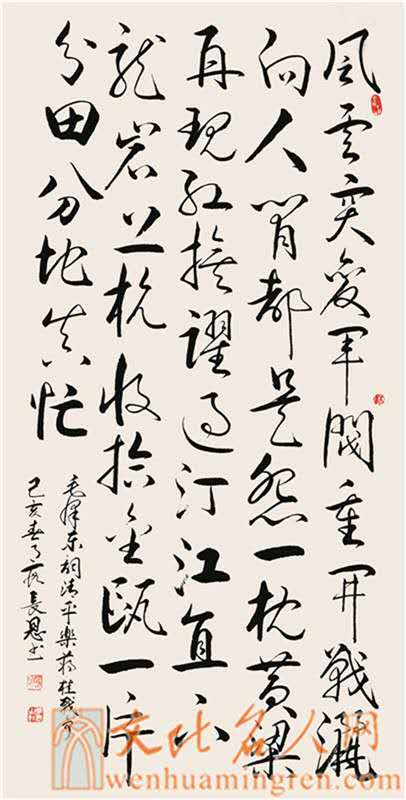 風云突变军閥重开戰灑
向人间都是怨一枕黄粱
再现红旗躍过汀江直下
龍岩上杭收拾金瓯一片
分田分地真忙
毛澤东词清平樂蒋桂战争
己亥春月長恩书
文化名人网
wenhuamingren.com